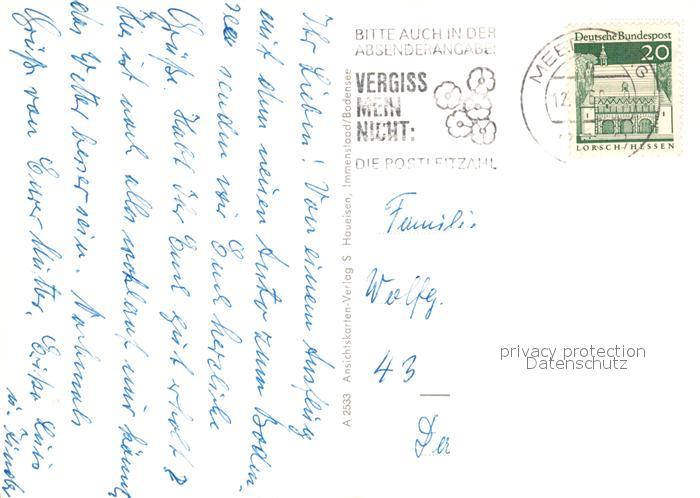 Ihr Lieben! Von einem Ausflug
mit dem neuen Auto zum Boden-
see senden wir Euch herzliche
Grüße. Habt Ihr Euch gut erholt?
hier ist noch alles wohlauf nur könnte
das Wetter besser sein. Nochmals
Grüße von Eurer Mutter, Erika, Luis
u. Kinder
A 2533 Ansichtskarten-Verlag S Haueisen, Immenstaad/Bodensee
BITTE AUCH IN DER
ABSENDERANGABE:
VERGISS
MEIN
NICHT:
DIE POSTLEITZAHL
MEE
G
12.
Deutsche Bundespost
20
LORSCH/HESSEN
Familie
Wolfg.
43
privacy protection
Datenschutz